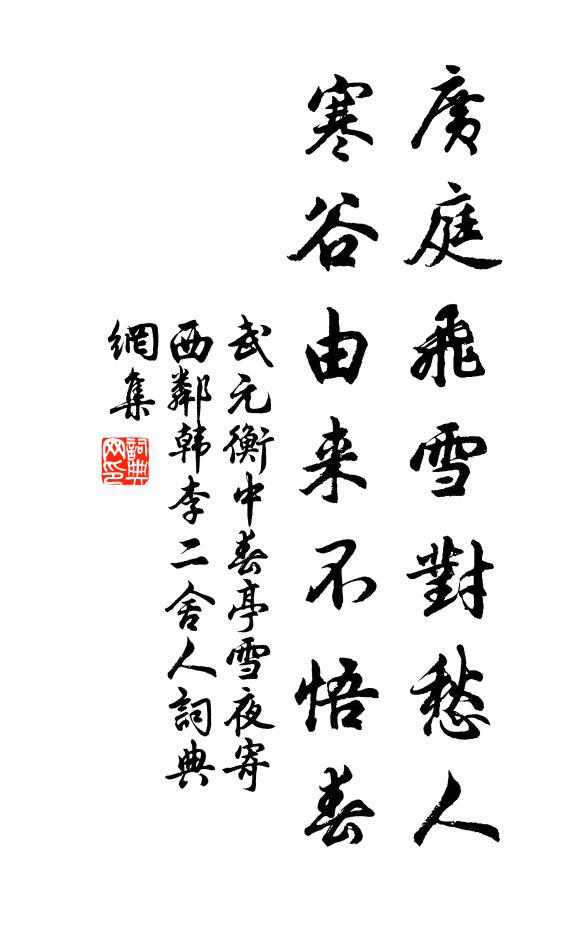 廣庭飛雪對愁人
寒谷由来不悟春
武元衡中春亭雪夜寄
西鄰韩李二舍人詞典
網集
詞典
网印